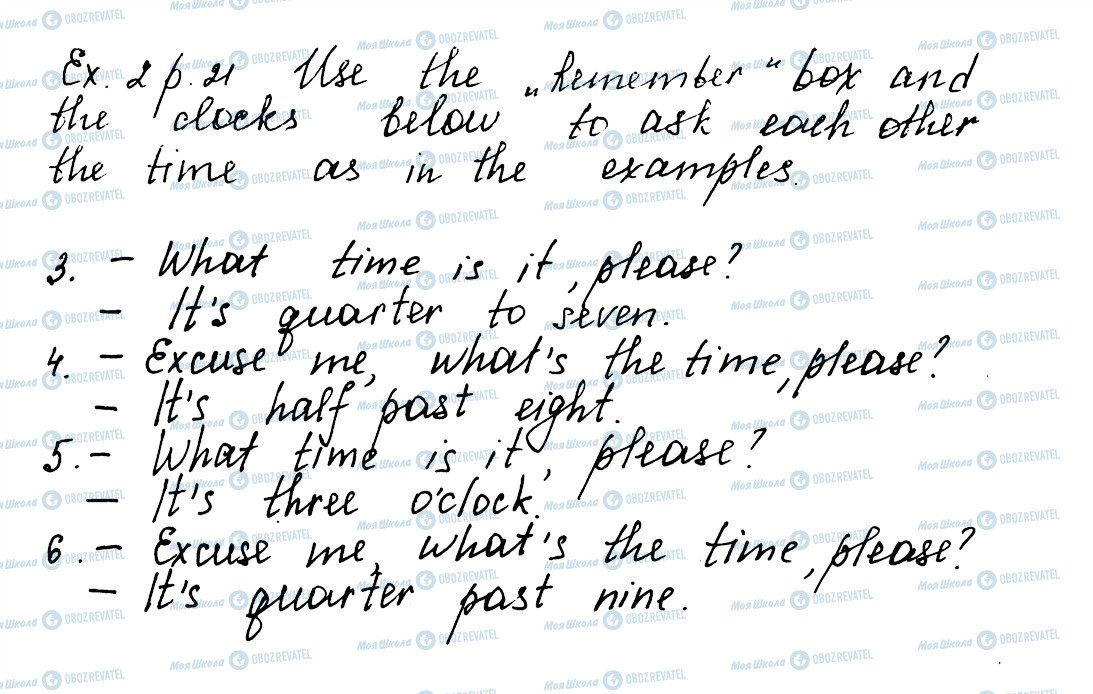 Ex. 2 p. 21 Use the „Remember“ box and
the clocks below to ask each other
the time as in the examples.
3. – What time is it, please?
– It's quarter to seven.
4. – Excuse me, what's the time, please?
– It's half past eight.
5. – What time is it, please?
– It's three o'clock.
6. – Excuse me, what's the time, please?
– It's quarter past nine.
Моя Школа OBOZREVATEL